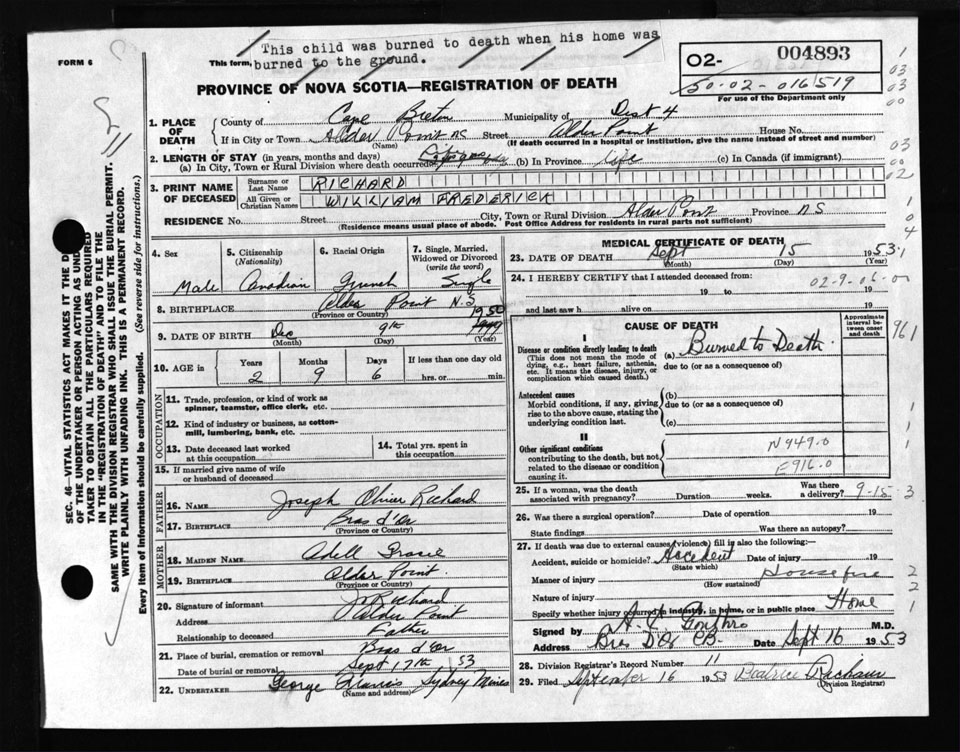 This child was burned to death when his home was
FORM 6
This form, burned to the ground.
02- 004893
50-02-016519
For use of the Department only
PROVINCE OF NOVA SCOTIA—REGISTRATION OF DEATH
1. PLACE OF DEATH
County of Cape Breton Municipality of Dist 4
If in City or Town Alder Point NS Street Alder Point House No.
(Name) (If death occurred in a hospital or institution, give the name instead of street and number)
2. LENGTH OF STAY (in years, months and days)
(a) In City, Town or Rural Division where death occurred (b) In Province Life (c) In Canada (if immigrant)
3. PRINT NAME OF DECEASED
Surname or Last Name RICHARD
All Given or Christian Names WILLIAM FREDERICK
RESIDENCE No. Street City, Town or Rural Division Alder Point Province NS
(Residence means usual place of abode. Post Office Address for residents in rural parts not sufficient)
4. Sex Male
5. Citizenship (Nationality) Canadian
6. Racial Origin French
7. Single, Married, Widowed or Divorced (write the word) Single
8. BIRTHPLACE Alder Point N.S.
(Province or Country)
9. DATE OF BIRTH Dec 9th 1950
(Month) (Day) (Year)
10. AGE in Years 2 Months 9 Days 6 If less than one day old hrs. or min.
OCCUPATION
11. Trade, profession, or kind of work as spinner, teamster, office clerk, etc.
12. Kind of industry or business, as cotton-mill, lumbering, bank, etc.
13. Date deceased last worked at this occupation
14. Total yrs. spent in this occupation
15. If married give name of wife or husband of deceased
FATHER
16. NAME Joseph Oliver Richard
17. BIRTHPLACE Bras d'Or
(Province or Country)
MOTHER
18. MAIDEN NAME Adell
19. BIRTHPLACE Alder Point
(Province or Country)
20. Signature of informant Jo Richard
Address Alder Point
Relationship to deceased Father
21. Place of burial, cremation or removal Bras d'Or
Date of burial or removal Sept 17th 53
22. UNDERTAKER George Francis Sydney Mines
(Name and address)
MEDICAL CERTIFICATE OF DEATH
23. DATE OF DEATH Sept 15 1953
(Month) (Day) (Year)
24. I HEREBY CERTIFY that I attended deceased from:
19 to 19
and last saw h alive on 19
02-9-06-00
CAUSE OF DEATH
Approximate interval between onset and death
I
Disease or condition directly leading to death
(This does not mean the mode of dying, e.g., heart failure, asthenia, etc. It means the disease, injury, or complication which caused death.)
(a) Burned to Death.
due to (or as a consequence of)
Antecedent causes
Morbid conditions, if any, giving rise to the above cause, stating the underlying condition last.
(b)
due to (or as a consequence of)
(c)
II
Other significant conditions
contributing to the death, but not related to the disease or condition causing it.
N949.0
E916.0
25. If a woman, was the death associated with pregnancy? Duration weeks. Was there a delivery? 9-15-3
26. Was there a surgical operation? Date of operation 19
State findings Was there an autopsy?
27. If death was due to external causes (violence) fill in also the following:—
Accident, suicide or homicide? Accident Date of injury 19
(State which)
Manner of injury House fire
(How sustained)
Nature of injury
Specify whether injury occurred in industry, in home, or in public place Home
Signed by M.D.
Address Bras D'Or CB. Date Sept 16 1953
28. Division Registrar's Record Number 11
29. Filed September 16 1953 Beatrice
(Division Registrar)
SEC. 46—VITAL STATISTICS ACT MAKES IT THE
OF THE UNDERTAKER OR PERSON ACTING AS
TAKER TO OBTAIN ALL THE PARTICULARS REQUIRED
IN THE "REGISTRATION OF DEATH" AND TO FILE THE
SAME WITH THE DIVISION REGISTRAR WHO SHALL ISSUE THE BURIAL PERMIT.
WRITE PLAINLY WITH UNFADING INK. THIS IS A PERMANENT RECORD.
Every item of information should be carefully supplied. (See reverse side for instructions.)